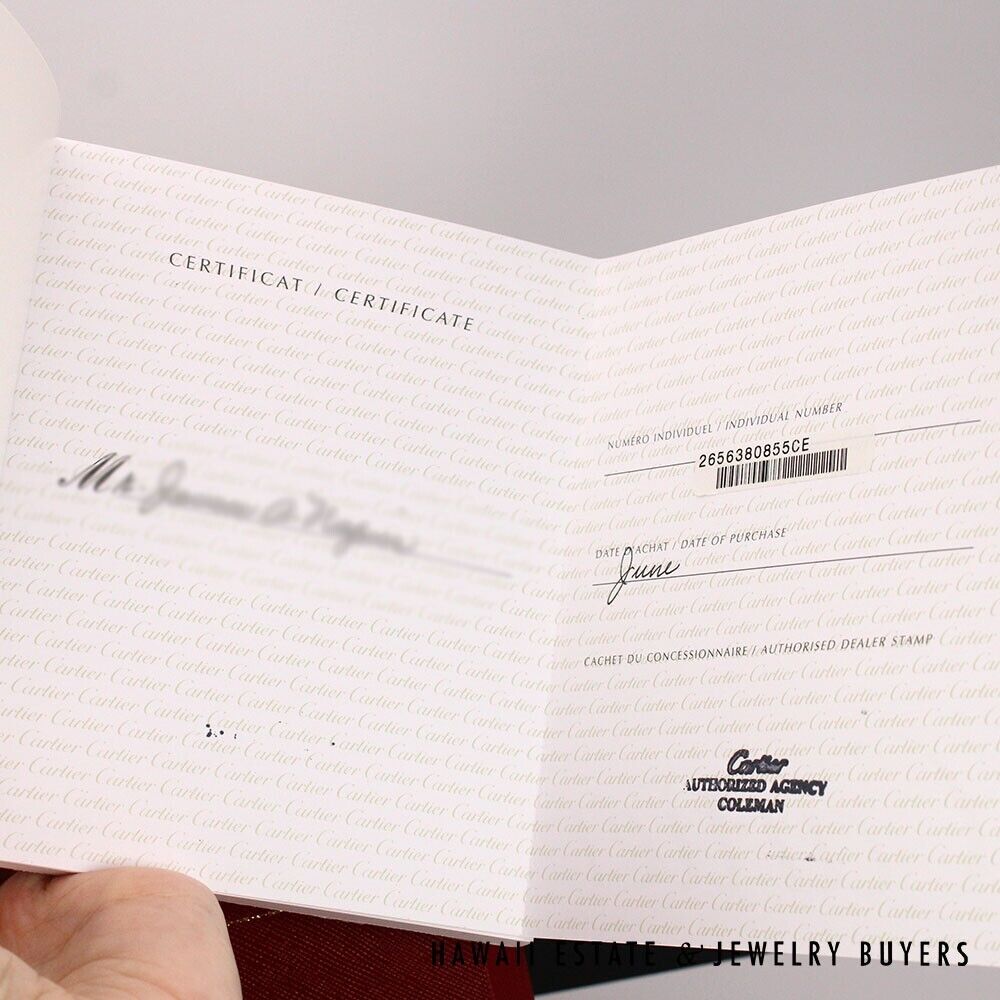 CERTIFICAT / CERTIFICATE
Mr.
NUMÉRO INDIVIDUEL / INDIVIDUAL NUMBER
2656380855CE
DATE D'ACHAT / DATE OF PURCHASE
June
CACHET DU CONCESSIONNAIRE / AUTHORISED DEALER STAMP
Cartier
AUTHORIZED AGENCY
COLEMAN
HAWAII ESTATE & JEWELRY BUYERS